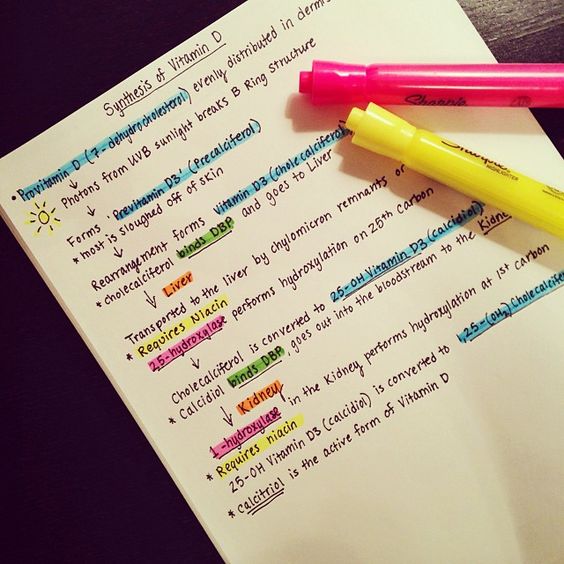 Synthesis of Vitamin D
• Provitamin D (7-dehydrocholesterol) evenly distributed in dermis
↓ Photons from UVB sunlight breaks B Ring Structure
↓
Forms 'Previtamin D3' (Precalciferol)
* most is sloughed off of skin
↓
Rearrangement forms vitamin D3 (Cholecalciferol)
* cholecalciferol binds DBP and goes to Liver
↓ Liver
Transported to the liver by chylomicron remnants or
* Requires Niacin
25-hydroxylase performs hydroxylation on 25th Carbon
↓
Cholecalciferol is converted to 25-OH Vitamin D3 (calcidiol).
* Calcidiol binds DBP, goes out into the bloodstream to the Kidney
↓ Kidney
1-hydroxylase in the Kidney performs hydroxylation at 1st carbon
* Requires niacin
25-OH Vitamin D3 (calcidiol) is converted to 1,25-(OH2) Cholecalcife
* Calcitriol is the active form of Vitamin D
Sharpie
Sharpie
HIGHLIGHTER